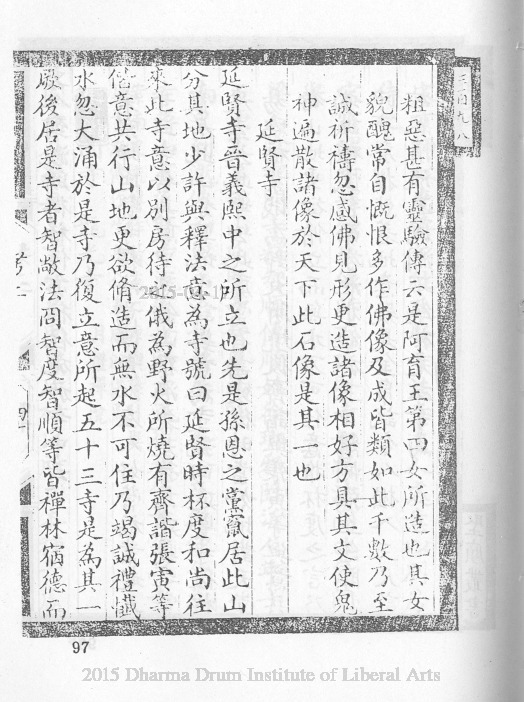 三百九八
粗惡甚有靈驗傳云是阿育王第四女所造也其女
貌醜常自慨恨多作佛像及成皆類如此千數乃至
誠祈禱忽感佛見形更造諸像相好方具其文使鬼
神遍散諸像於天下此石像是其一也
延賢寺
延賢寺晉義熙中之所立也先是孫恩之黨竄居此山
分其地少許與釋法意為寺號曰延賢時杯度和尚往
來此寺意以別房待之俄為野火所燒有齊諧張寅等
偕意共行山地更欲脩造而無水不可住乃竭誠禮懺
水忽大涌於是寺乃復立意所起五十三寺是為其一
厥後居是寺者智敞法冏智度智順等皆禪林宿德而
97
2015 Dharma Drum Institute of Liberal Arts